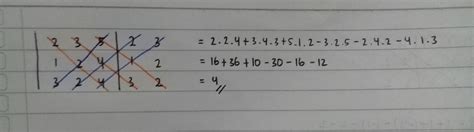 | 2 3 5 | 2 3 = 2.2.4 + 3.4.3 + 5.1.2 - 3.2.5 - 2.4.2 - 4.1.3
| 1 2 4 | 1 2 = 16 + 36 + 10 - 30 - 16 - 12
| 3 2 4 | 3 2 = 4